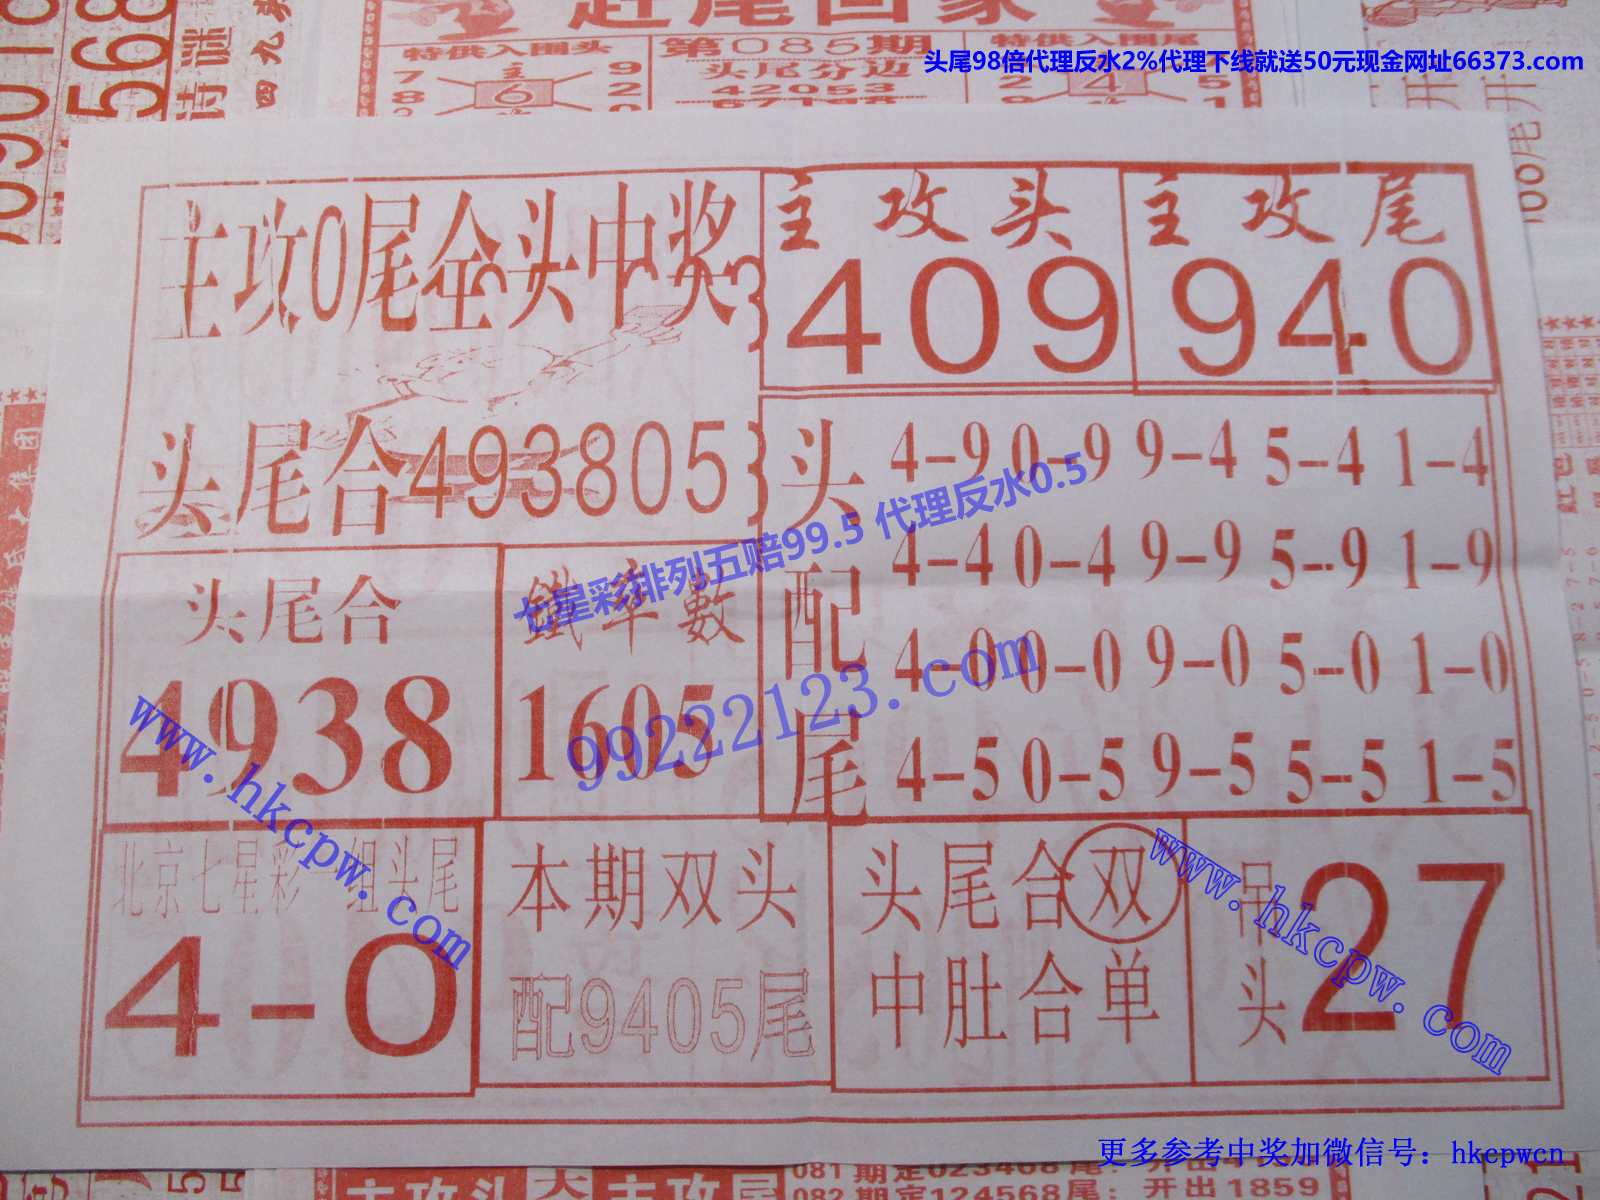 赶尾回家
特供入围头
第085期
特供入围尾
头尾分边
42053
主
6
4
7
9
8
2
头尾98倍代理反水2%代理下线就送50元现金网址66373.com
特谜
主攻0尾全头中奖
主攻头
409
主攻尾
940
头尾合493805
头配尾
4-9 0-9 9-4 5-4 1-4
4-4 0-4 9-9 5-9 1-9
4-0 0-0 9-0 5-0 1-0
4-5 0-5 9-5 5-5 1-5
头尾合
4938
鐵率數
1605
七星彩排列五赔99.5 代理反水0.5
99222123.com
www.hkcpw.com
北京七星彩一组头尾
4-0
本期双头
配9405尾
头尾合双
中肚合单
吊头
27
www.hkcpw.com
更多参考中奖加微信号：hkcpwcn
主攻头
主攻尾
081期定023468尾：开出4
082期定124568尾：开出1859